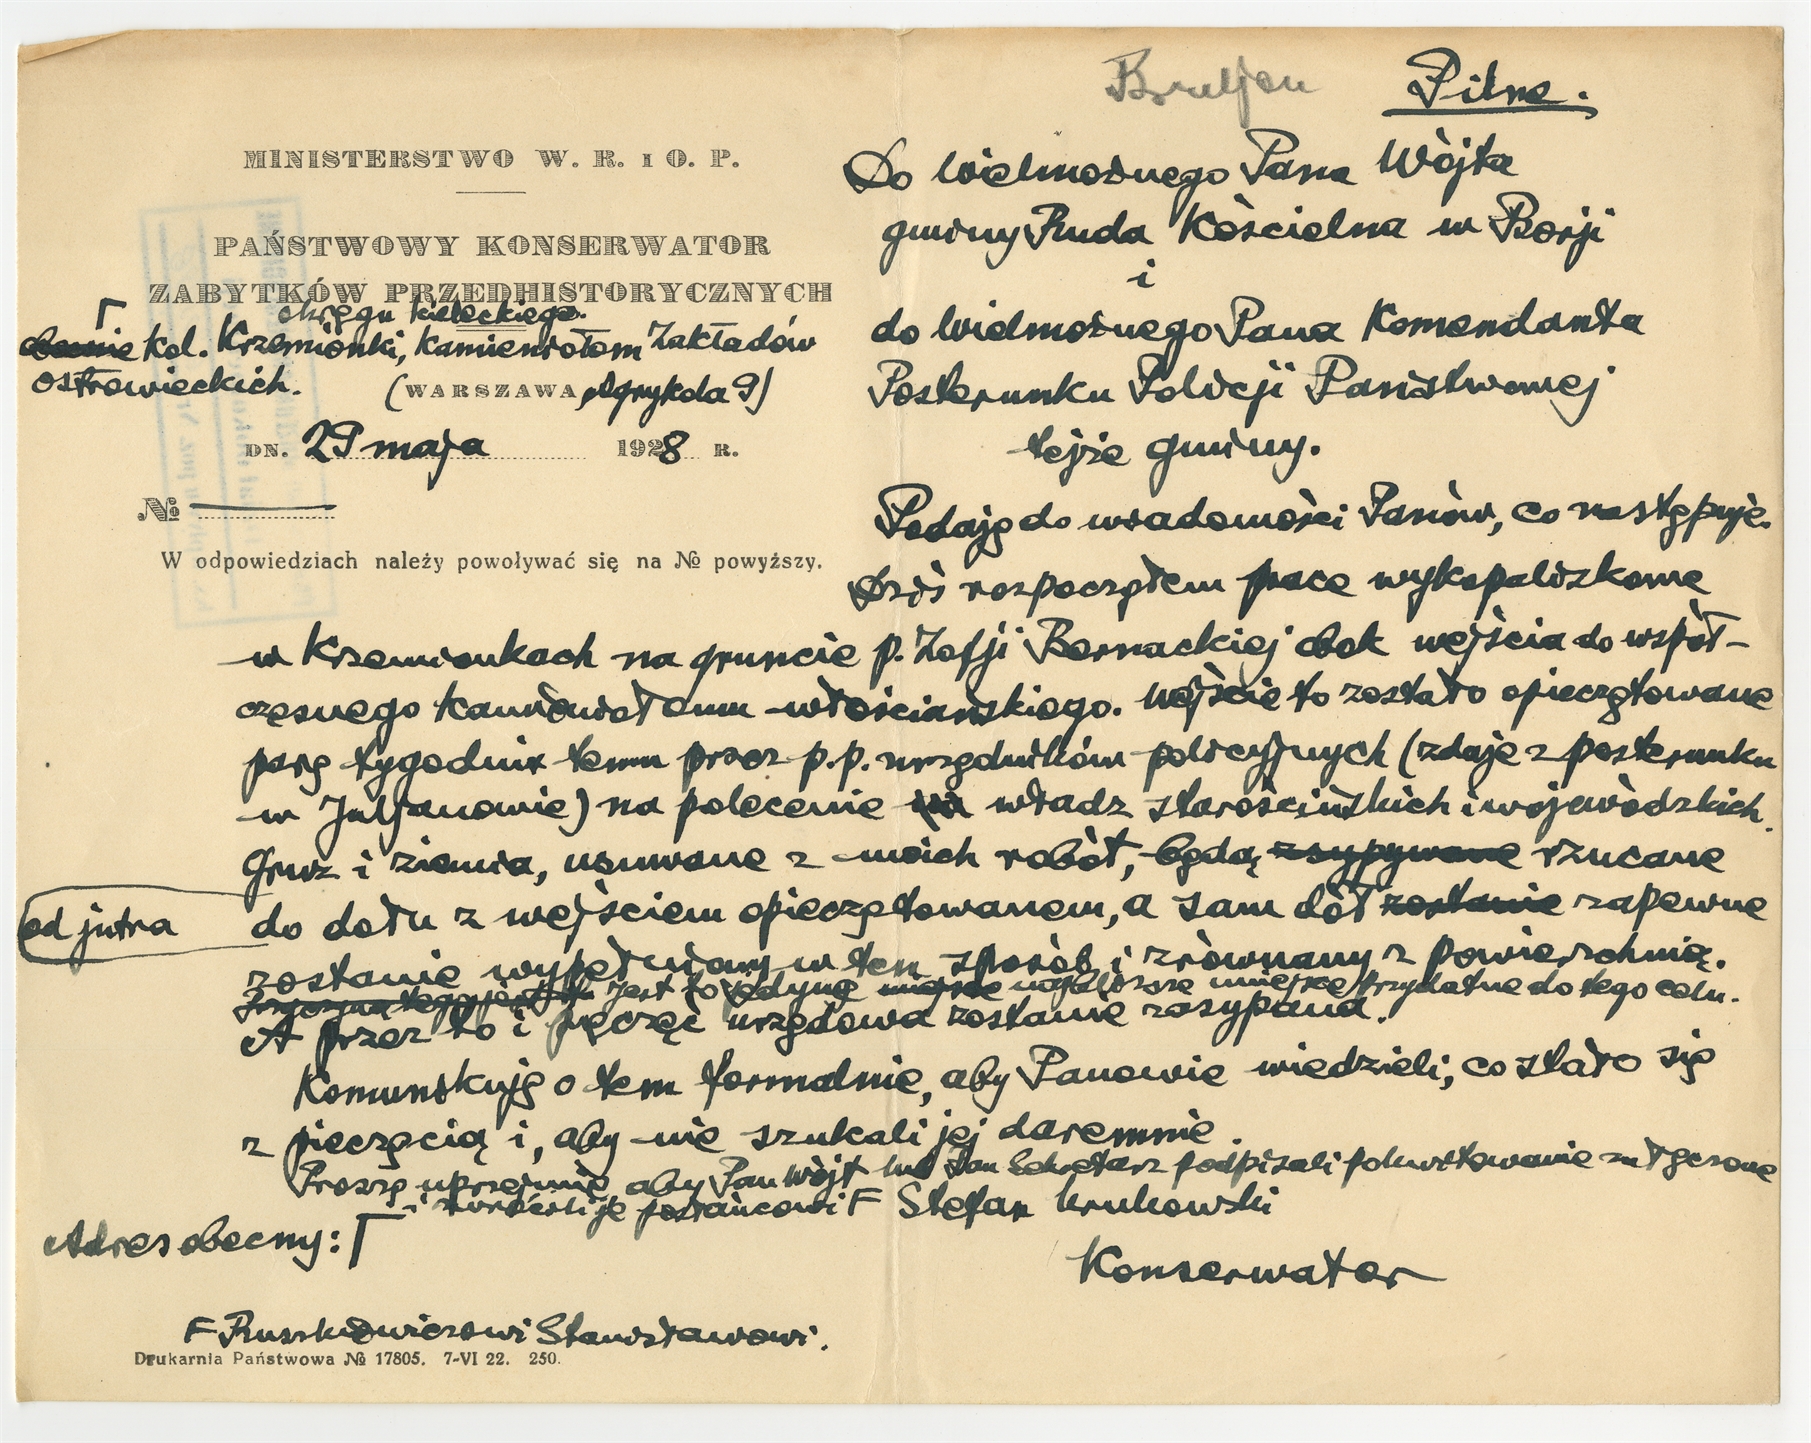 Bruljon
Pilne.
MINISTERSTWO W. R. i O. P.
PAŃSTWOWY KONSERWATOR
ZABYTKÓW PRZEDHISTORYCZNYCH
okręgu kieleckiego.
Kol. Krzemionki, kamieniołom Zakładów
Ostrowieckich.
(WARSZAWA, Agrykola 9)
DN. 29 maja 1928 R.
№
W odpowiedziach należy powoływać się na № powyższy.
Do Wielmożnego Pana Wójta
gminy Ruda Kościelna w Borji
i
do Wielmożnego Pana Komendanta
Posterunku Policji Państwowej
tejże gminy.
Podaję do wiadomości Panów, co następuje.
Dziś rozpocząłem prace wykopaliskowe
w Krzemionkach na gruncie p. Zofji Bernackiej obok wejścia do współ-
czesnego kamieniołomu włościańskiego. Wejście to zostało opieczętowane
parę tygodni temu przez p.p. urzędników policyjnych (zdaje z posterunku
w Juljanowie) na polecenie władz starościńskich i wojewódzkich.
Gruz i ziemia, usuwane z moich robót, będą zsypywane rzucane
od jutra
do dołu z wejściem opieczętowanem, a sam dół zostanie zapewne
zostanie wypełniony w ten sposób i zrównany z powierzchnią.
Jest to jedyne miejsce najbliższe miejsce przydatne do tego celu.
A przez to i pieczęć urzędowa zostanie zasypana.
Komunikuję o tem formalnie, aby Panowie wiedzieli, co stało się
z pieczęcią i, aby nie szukali jej daremnie.
Proszę uprzejmie, aby Pan Wójt lub Pan Sekretarz podpisali pokwitowanie załączone
i zwrócili je posłańcowi F
Stefan Krukowski
Konserwator
Adres obecny: Γ
F Ruszkiewiczowi Stanisławowi.
Drukarnia Państwowa № 17805. 7-VI 22. 250.